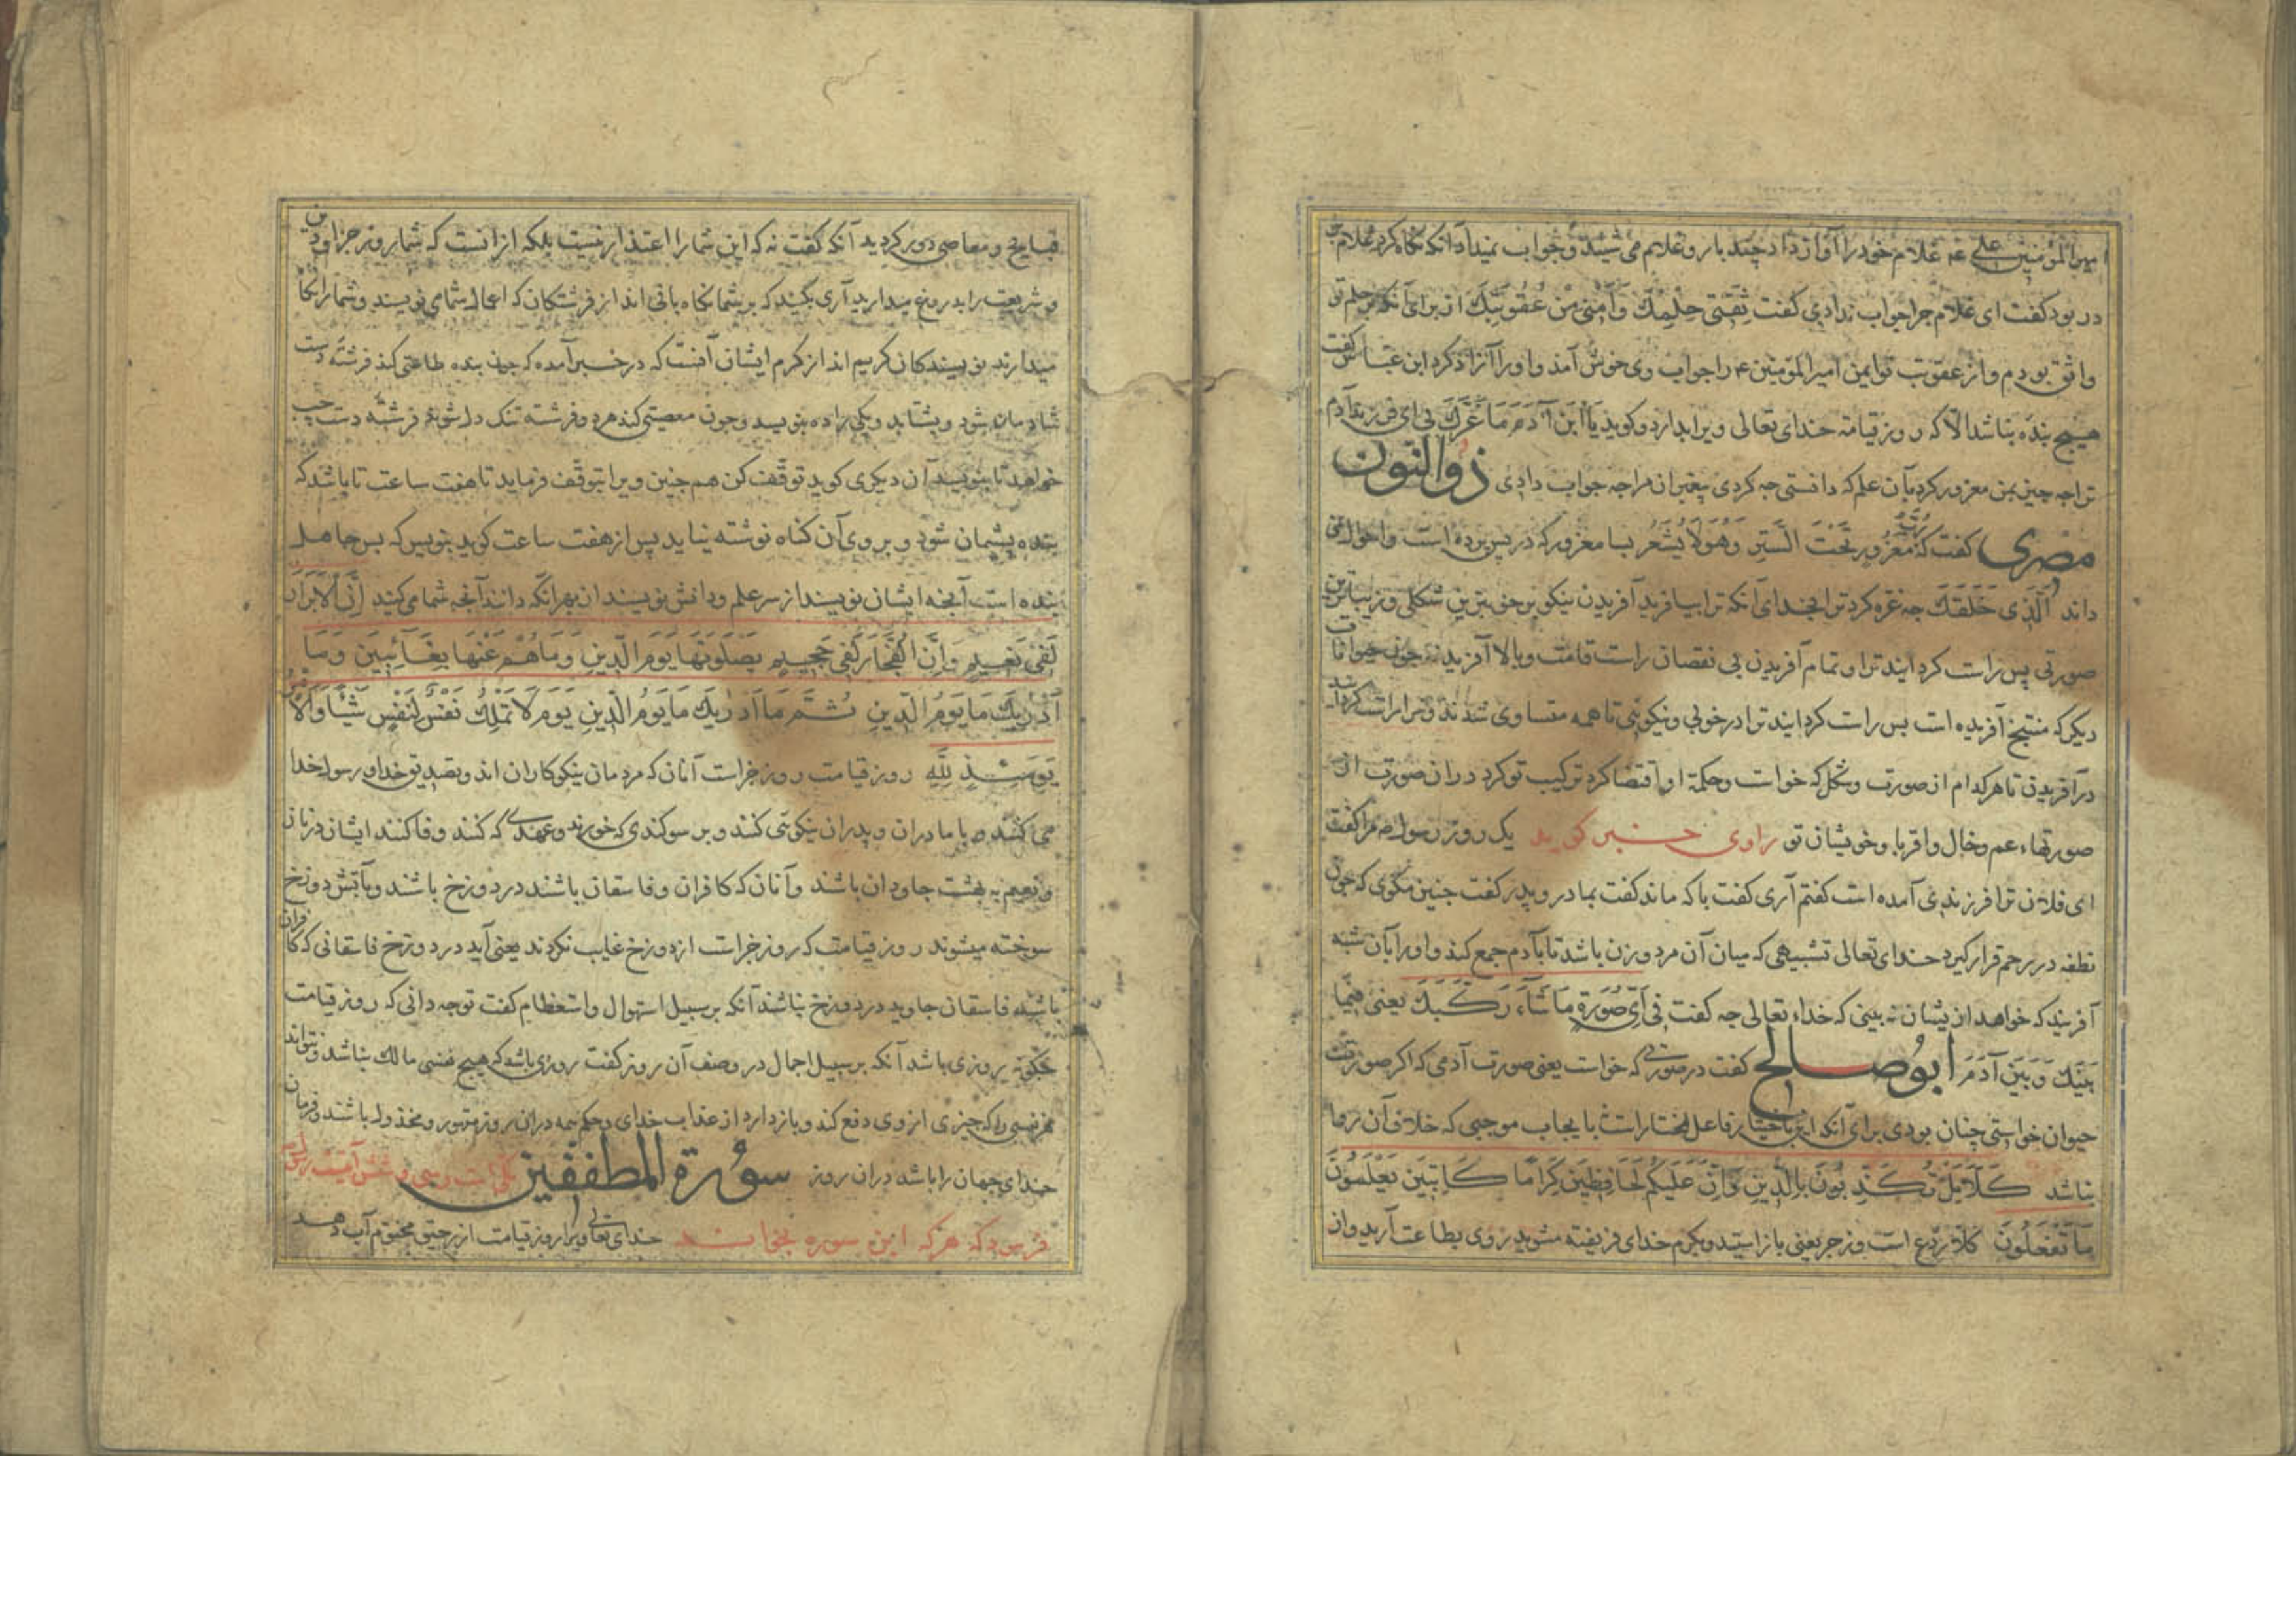 امیرالمؤمنین علی ع غلام خود را آواز داد چند بار و غلام می شنید و جواب نمیداد آنکه نگاه کرد غلام بر
در بود کفت ای غلام چرا جواب ندادی کفت ثِقَتی حِلْمِكَ وَأَمْنی مِنْ عُقُوبَتِكَ از برای آنکه بر حلم تو
واثق بودم و از عقوبت تو ایمن امیرالمؤمنین ع را جواب وی خوش آمذ و او را آزاذ کرد ابن عباس کفت
هیچ بنده نباشد الّا که روز قیامة خدای تعالی ویرا بدارد و کوید یَا ابْنَ آدَمَ مَا غَرَّكَ بی ای فرزند آدم
ترا چه چیز بمن مغرور کرد بآن علم که دانستی چه کردی پیغمبران مرا چه جواب دادی ذوالنون
مصری کفت که رُبَّ مَغْرُورٍ تَحْتَ السَّتْرِ وَهُوَ لَا یُشْعَر بسا مغرور که در پس پرده است و احوال نمی
داند الَّذِی خَلَقَكَ چه غره کرد ترا بخدای آنکه ترا بیافرید آفریدن نیکو بر خوبترین شکلی و زیباترین
صورتی پس راست کردانید ترا و تمام آفریدن بی نقصان راست قامت و بالا آفریدند چون حیوانات
دیکر که آفریده است پس راست کردانید ترا در خوبی و نیکوئی تا همه متساوی شدند و ترا راست کردانید
در آفریدن تا هر کدام از صورت و شکل که خواست و حکمة او اقتضا کرد ترکیب تو کرد در ان صورت از
صورتهاء عم و خال و اقربا و خویشان تو راوی خبر کوید یک روز رسول ص مرا کفت
ای فلان ترا فرزندی آمده است کفتم آری کفت باکه ماند کفت بمادر و پدر کفت چنین مکوی که چون
نطفه در رحم قرار کیرد خدای تعالی تشبیهی که میان آن مرد و زن باشد تا بآدم جمع کند و او را بآن شبه
آفریند که خواهد ازیشان نه بینی که خداء تعالی چه کفت فِی أَیِّ صُورَةٍ مَا شَاءَ رَكَّبَكَ یعنی فیما
بَیْنَكَ وَ بَیْنَ آدَمَ ابوصالح کفت در صورتی که خواست یعنی صورت آدمی که اکر صورت
حیوان خواستی چنان بودی برای آنکه این باختیار فاعل مختارست با یجاب موجبی که خلاف آن روا
نباشد كَلَّا بَلْ تُكَذِّبُونَ بِالدِّینِ وَإِنَّ عَلَیْكُمْ لَحَافِظِینَ كِرَامًا كَاتِبِینَ یَعْلَمُونَ
مَا تَفْعَلُونَ کلّا ردع است و زجر یعنی باز ایستید و بکرم خدای فریفته مشوید روی بطاعت آرید و از
قبایح و معاصی دور کردید آنکه کفت نه که این شما را اعتذار نیست بلکه از انست که شما روز جزا و دین
و شریعت را بدروغ میدارید آری بکنید که بر شما نکاه بانی اند از فرشتکان که اعمال شما می نویسند و شما را نکاه
میدارند نویسندکان کریم اند از کرم ایشان آنست که در خبر آمده که چون بنده طاعتی کند فرشته دست
شادمان شود و بشتابد و یکی را ده بنویسد و چون معصیتی کند هر دو فرشته تنک دل شوند فرشته دست چپ
خواهد تا بنویسد آن دیکری کوید توقّف کن همچنین ویرا توقّف فرماید تا هفت ساعت تا باشد که
بنده پشیمان شود و بر وی آن کناه نوشته نیاید پس از هفت ساعت کوید بنویس که بس جاهل
بنده است آنچه ایشان نویسند از سر علم و دانش نویسند از بهر انکه دانند آنچه شما می کنید إِنَّ الْأَبْرَارَ
لَفِی نَعِیمٍ وَإِنَّ الْفُجَّارَ لَفِی جَحِیمٍ یَصْلَوْنَهَا یَوْمَ الدِّینِ وَمَا هُمْ عَنْهَا بِغَائِبِینَ وَمَا
أَدْرَیكَ مَا یَوْمُ الدِّینِ ثُمَّ مَا أَدْرَیكَ مَا یَوْمُ الدِّینِ یَوْمَ لَا تَمْلِكُ نَفْسٌ لِنَفْسٍ شَیْئًا وَالْأَمْرُ
یَوْمَئِذٍ لِلَّهِ روز قیامت روز جزاست آنان که مردمان نیکوکاران اند و تصدیق خدا و رسول خدا
می کنند و با مادران و پدران نیکوئی کنند و بر سوکندی که خورند و عهدی که کنند وفا کنند ایشان در ناز
و نعیم به بهشت جاودان باشند و آنان که کافران و فاسقان باشند در دوزخ باشند و بآتش دوزخ
سوخته میشوند روز قیامت که روز جزاست از دوزخ غایب نکردند یعنی آید در دوزخ فاسقانی که کافران
باشند فاسقان جاوید در دوزخ نباشند آنکه بر سبیل استهوال و استعظام کفت تو چه دانی که روز قیامت
چکونه روزی باشد آنکه بر سبیل اجمال در وصف آن روز کفت روزی باشد که هیچ نفسی مالك نباشد و نتواند
هر نفسی را که چیزی از وی دفع کند و باز دارد از عذاب خدای و حکم همه در ان روز مقهور و مخذول باشند و فرمان
خدای جهان را باشد در ان روز سورة المطففین مکی است و سی و شش آیتست رسول
فرمود که هر که این سوره بخواند خدای تعالی ویرا روز قیامت از رحیق مختوم آب دهد